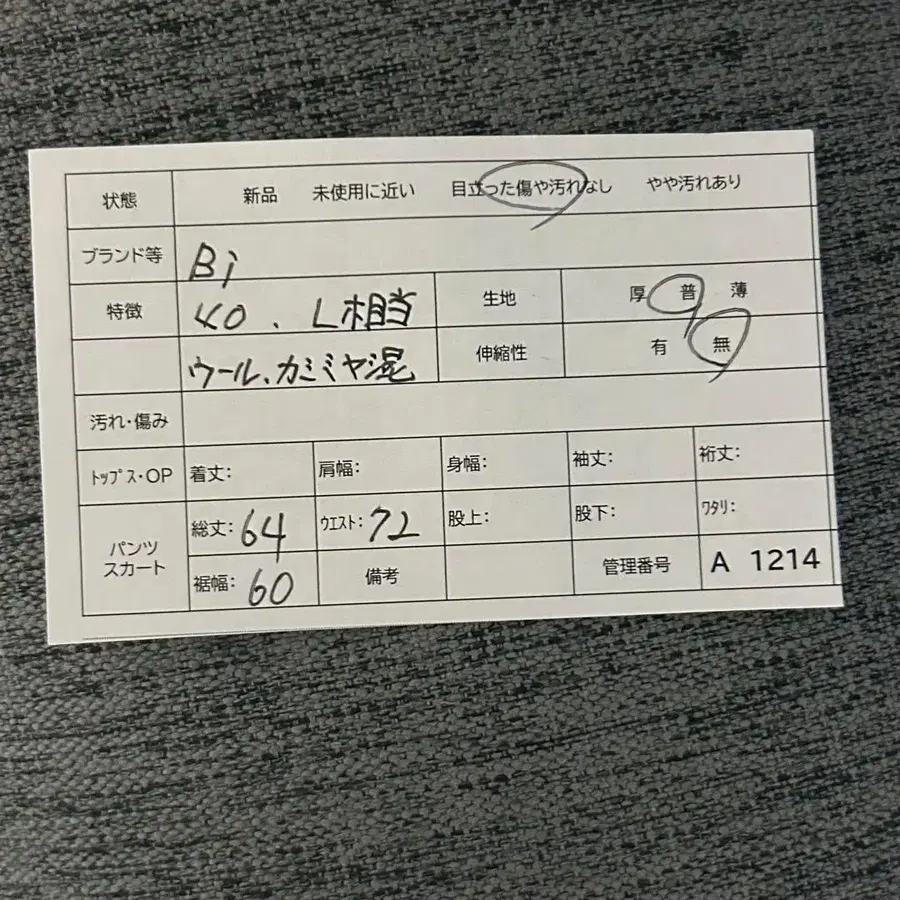 状態 新品 未使用に近い 目立った傷や汚れなし やや汚れあり
ブランド等 Bi
特徴 40、L相当 生地 厚 普 薄
ウール、カシミヤ混 伸縮性 有 無
汚れ・傷み
トップス・OP 着丈: 肩幅: 身幅: 袖丈: 裄丈:
パンツ スカート 総丈: 64 ウエスト: 72 股上: 股下: ワタリ:
裾幅: 60 備考 管理番号 A 1214